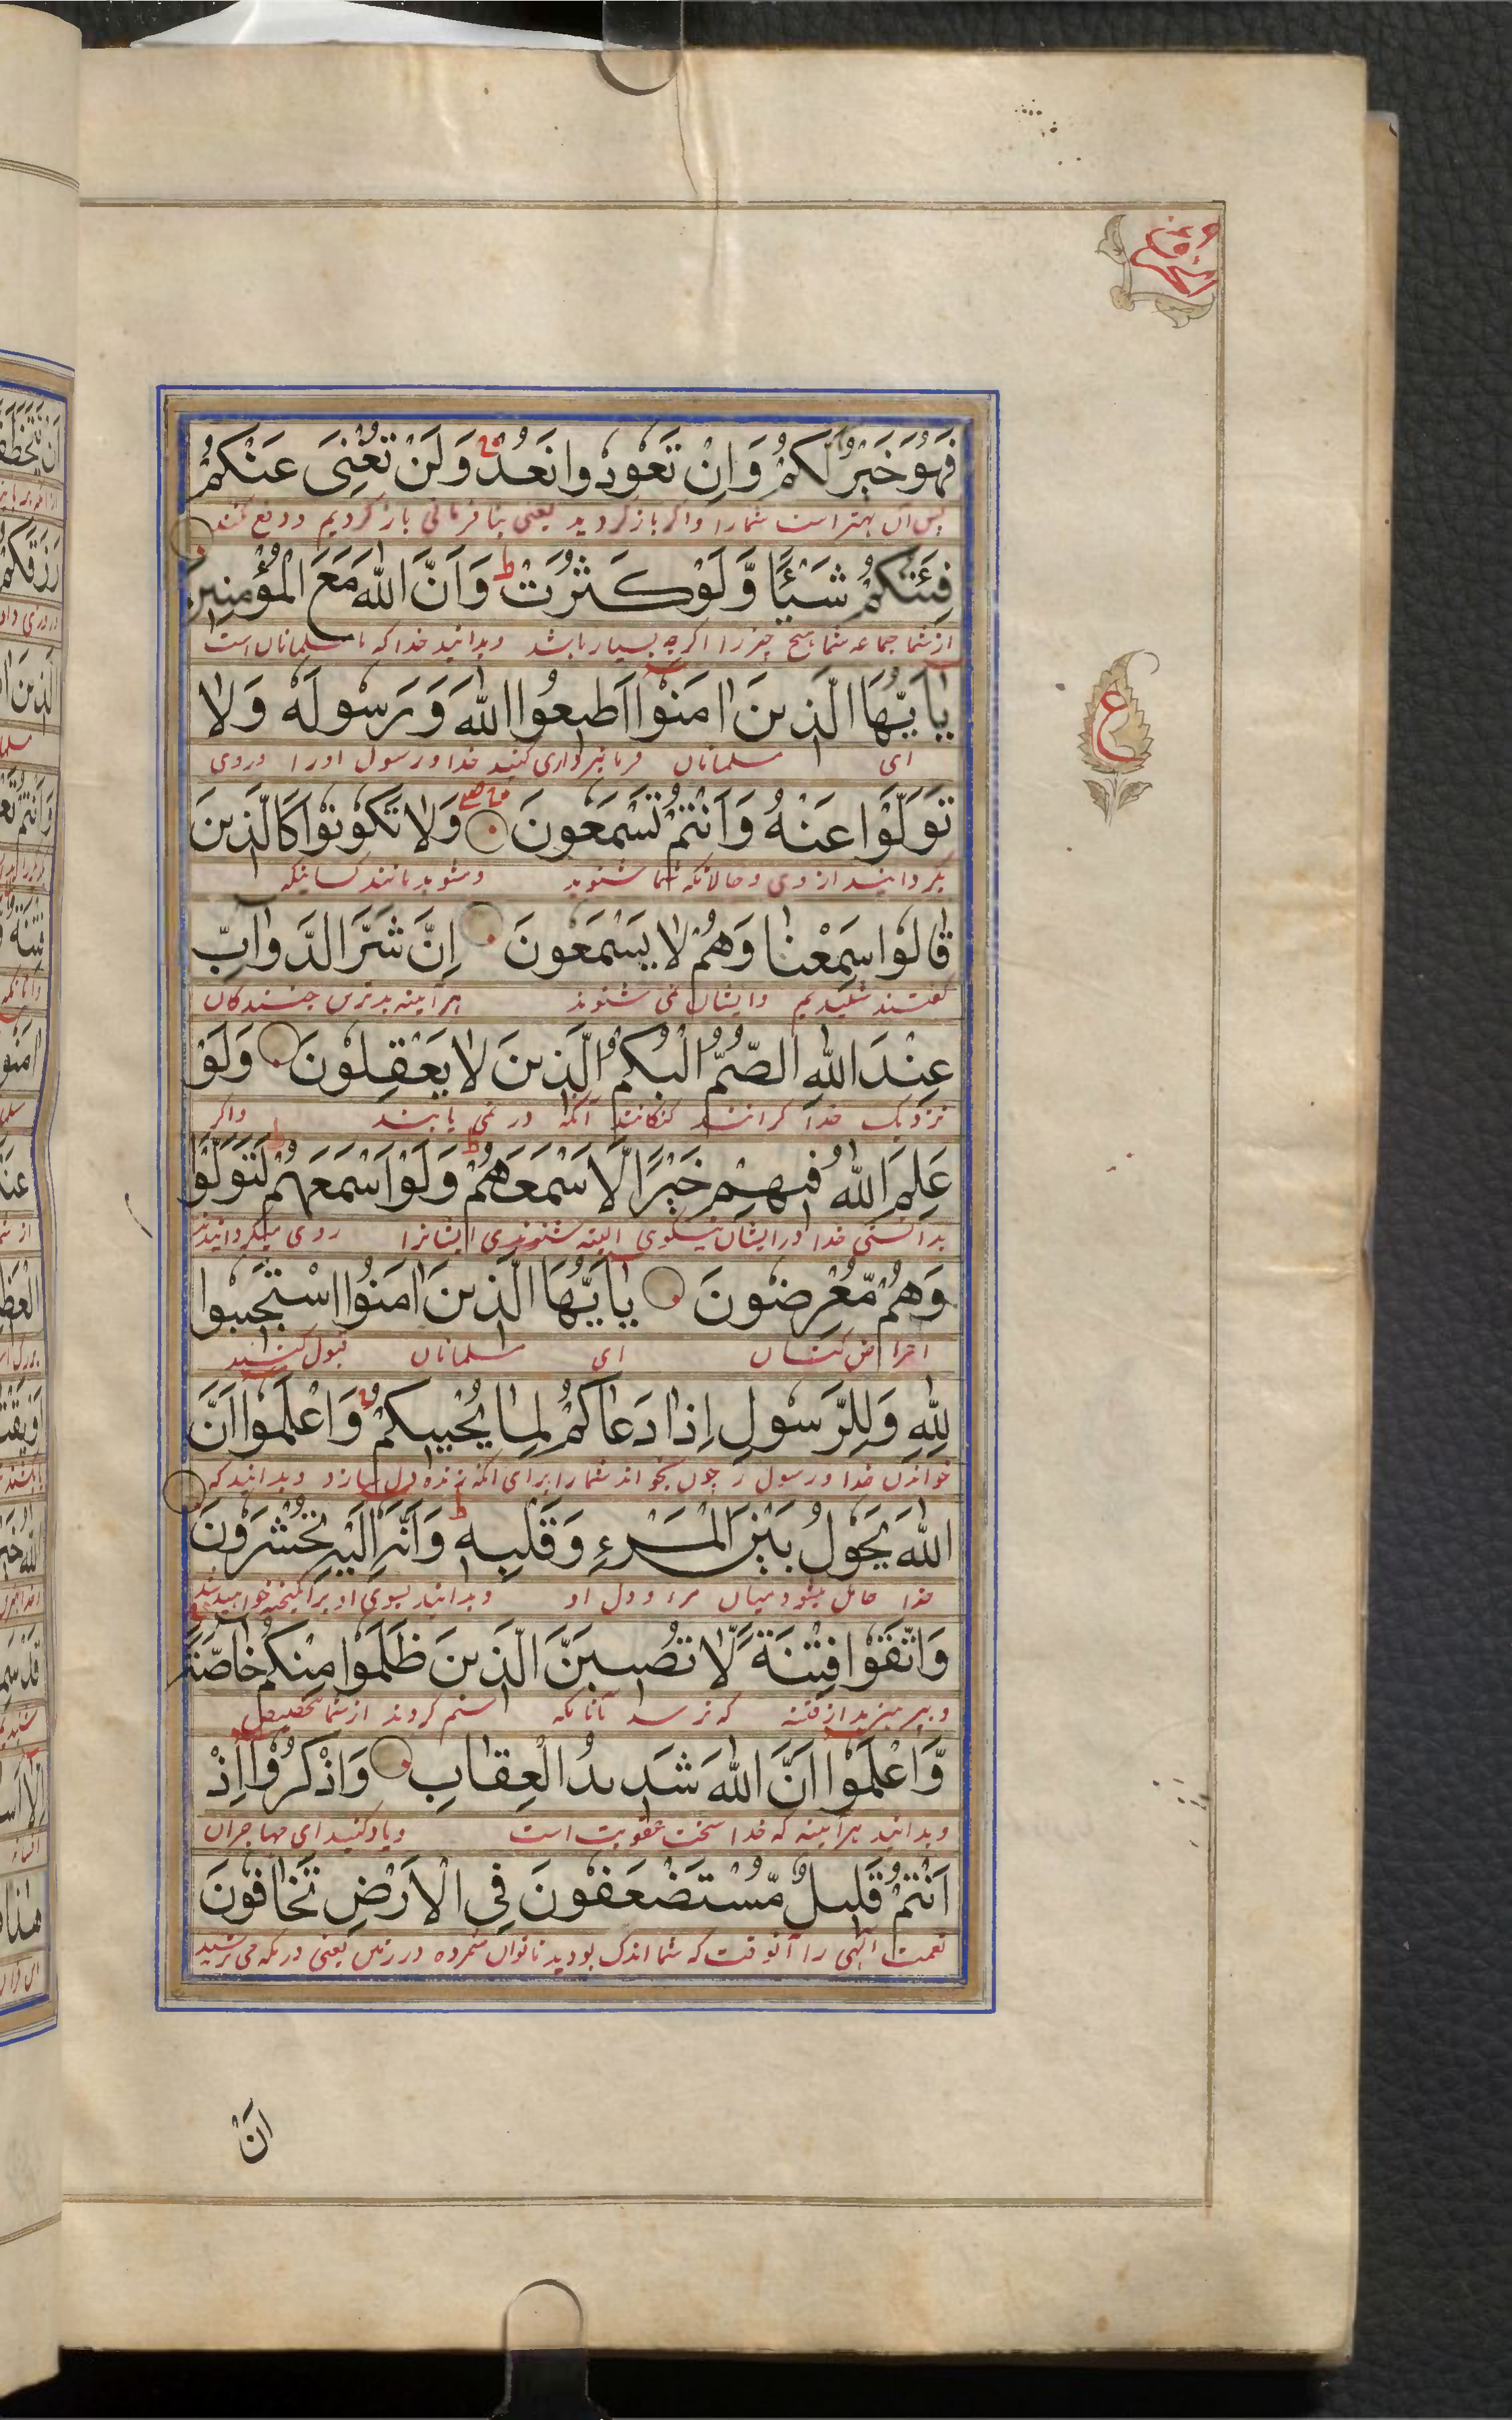 فَهُوَ خَيْرٌ لَّكُمْ وَاِنْ تَعُوْدُوا نَعُدْ وَلَنْ تُغْنِيَ عَنْكُمْ
پس آن بهتر است شما را و اگر باز گردید یعنی بنافرمانی باز گردیم و دفع نکند
فِئَتُكُمْ شَيْـًٔا وَّلَوْ كَثُرَتْ ط وَاَنَّ اللّٰهَ مَعَ الْمُؤْمِنِيْنَ
از شما جماعه شما هیچ چیز را اگرچه بسیار باشد و بدانید خدا که با مسلمانان است
يٰاَيُّهَا الَّذِيْنَ اٰمَنُوْا اَطِيْعُوا اللّٰهَ وَرَسُوْلَهٗ وَلَا
ای مسلمانان فرمانبرداری کنید خدا و رسول او را و روی
تَوَلَّوْا عَنْهُ وَاَنْتُمْ تَسْمَعُوْنَ وَلَا تَكُوْنُوْا كَالَّذِيْنَ
بگردانید از وی و حالانکه شما شنوید و مشوید مانند کسانیکه
قَالُوْا سَمِعْنَا وَهُمْ لَا يَسْمَعُوْنَ اِنَّ شَرَّ الدَّوَآبِّ
گفتند شنیدیم و ایشان نمی شنوند هر آیینه بدترین جنبندگان
عِنْدَ اللّٰهِ الصُّمُّ الْبُكْمُ الَّذِيْنَ لَا يَعْقِلُوْنَ وَلَوْ
نزدیک خدا کرانند گنگانند آنکه در نمی یابند و اگر
عَلِمَ اللّٰهُ فِيْهِمْ خَيْرًا لَّاَسْمَعَهُمْ ط وَلَوْ اَسْمَعَهُمْ لَتَوَلَّوْا
بدانستی خدا در ایشان نیکوی البته شنوندی ایشانرا روی میگردانیدند
وَهُمْ مُّعْرِضُوْنَ يٰاَيُّهَا الَّذِيْنَ اٰمَنُوا اسْتَجِيْبُوْا
اعراض کنان ای مسلمانان قبول کنید
لِلّٰهِ وَلِلرَّسُوْلِ اِذَا دَعَاكُمْ لِمَا يُحْيِيْكُمْ وَاعْلَمُوْا اَنَّ
خواندن خدا و رسول را چون بخواند شما را برای آنکه زنده دل سازد و بدانید که
اللّٰهَ يَحُوْلُ بَيْنَ الْمَرْءِ وَقَلْبِهٖ ط وَاَنَّهٗ اِلَيْهِ تُحْشَرُوْنَ
خدا حایل میشود میان مرء و دل او و بدانید بسوی او برانگیخته خواهید شد
وَاتَّقُوْا فِتْنَةً لَّا تُصِيْبَنَّ الَّذِيْنَ ظَلَمُوْا مِنْكُمْ خَاصَّةً
و بپرهیزید از فتنه که نرسد آنانکه ستم کردند از شما تخصیص
وَّاعْلَمُوْا اَنَّ اللّٰهَ شَدِيْدُ الْعِقَابِ وَاذْكُرُوْا اِذْ
و بدانید هر آیینه که خدا سخت عقوبت است و یاد کنید ای مهاجران
اَنْتُمْ قَلِيْلٌ مُّسْتَضْعَفُوْنَ فِي الْاَرْضِ تَخَافُوْنَ
نعمت الهی را آنوقت که شما اندک بودید ناتوان شمرده در زمین یعنی در مکه می ترسید
ع
اَنْ